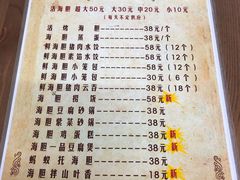 活海胆 超大50元 大30元 中20元 小10元
(每天不定供应)
活烤海胆 38元/个
海胆蒸蛋 38元/个
鲜海胆猪肉水饺 58元(12个)
鲜海胆素馅水饺 58元(12个)
鲜海胆小笼包 58元(12个)
鲜海胆小笼包 30元(6个)
鲜海胆猪肉云吞 38元(18个)
海胆捞饭 58元 新
海胆豆腐砂锅 38元
海胆紫菜砂锅 38元
海胆鸡蛋糕 38元 新
海胆一品豆腐煲 38元 新
蚂蚁托海胆 38元
海胆拌山叶香 18元 新